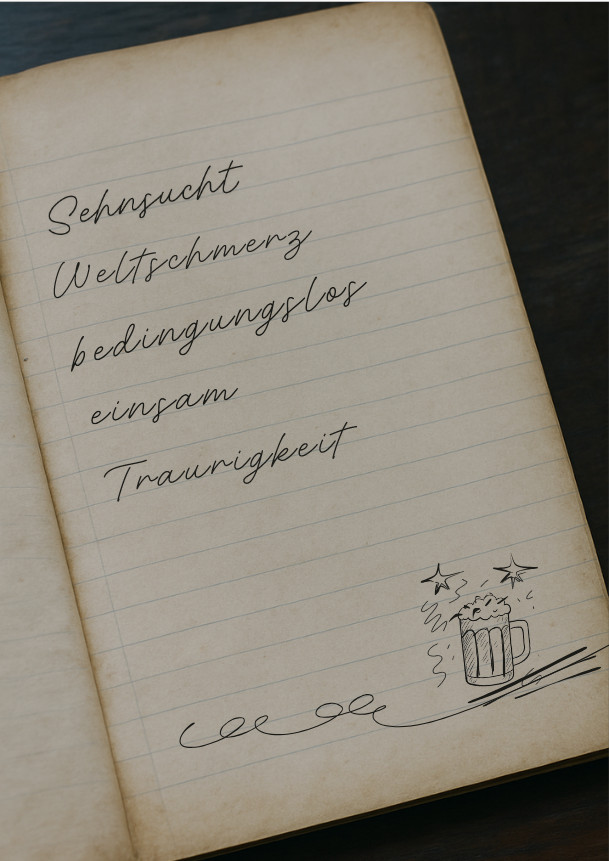 Sehnsucht
Weltschmerz
bedingungslos
einsam
Traurigkeit